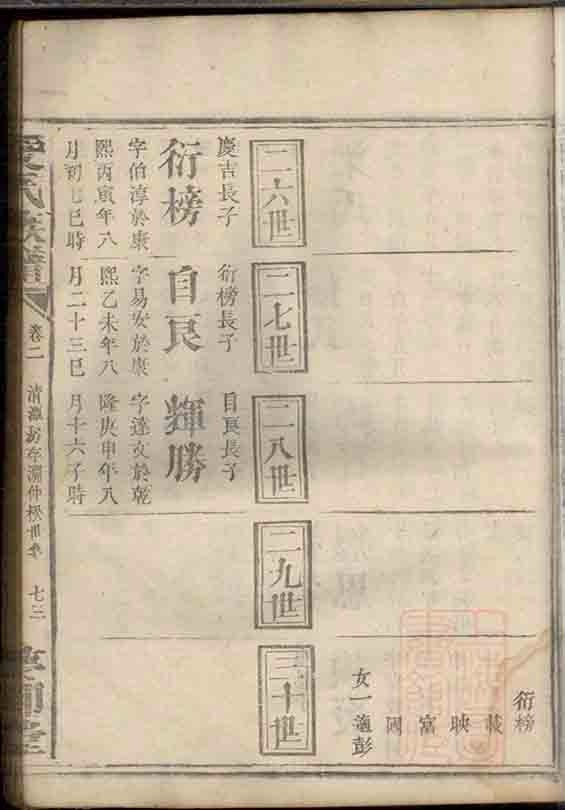 衍榜
載
映
富
國
女一適彭
二六世
慶吉長子
衍榜
字伯淳於康
熙丙寅年八
月初七巳時
二七世
衍榜長子
自良
字易安於康
熙乙未年八
月二十三巳
二八世
自良長子
輝勝
字達友於乾
隆庚申年八
月十六子時
二九世
三十世
氏族譜
卷二
七三